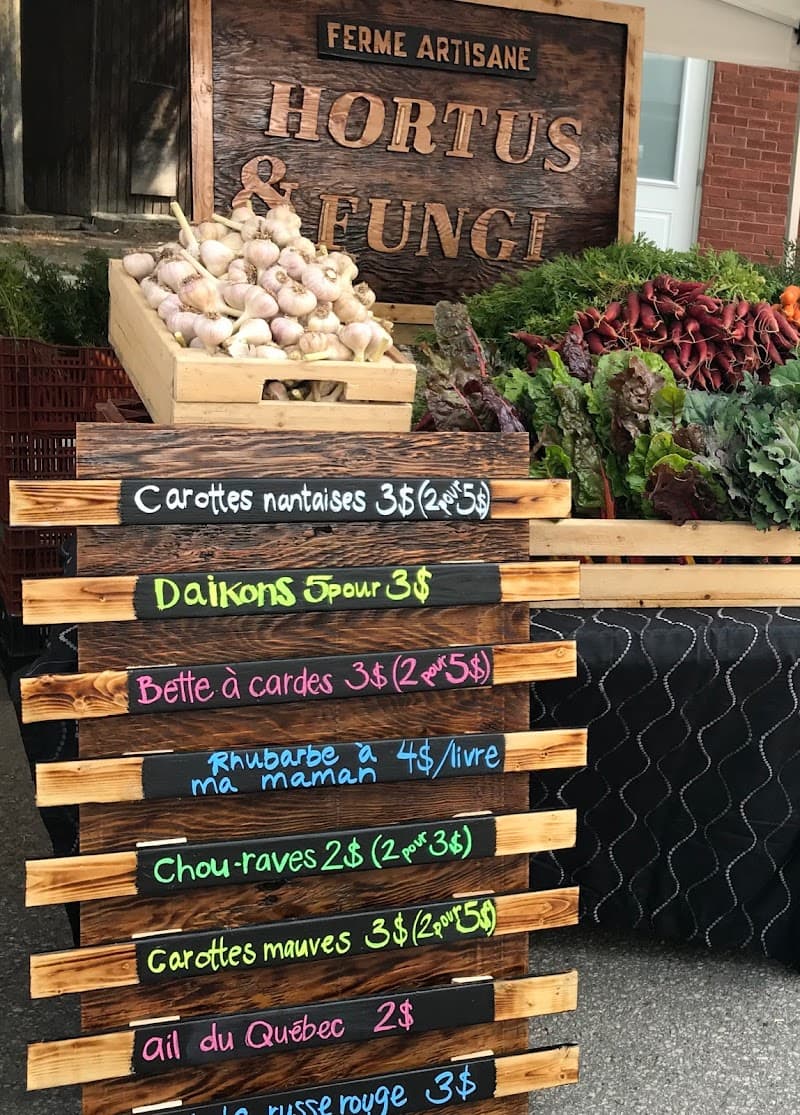 FERME ARTISANE
HORTUS
& FUNGI
Carottes nantaises 3$ (2 pour 5$)
Daikons 5 pour 3$
Bette à cardes 3$ (2 pour 5$)
Rhubarbe à
ma maman 4$/livre
Chou-raves 2$ (2 pour 3$)
Carottes mauves 3$ (2 pour 5$)
ail du Québec 2$
russe rouge 3$